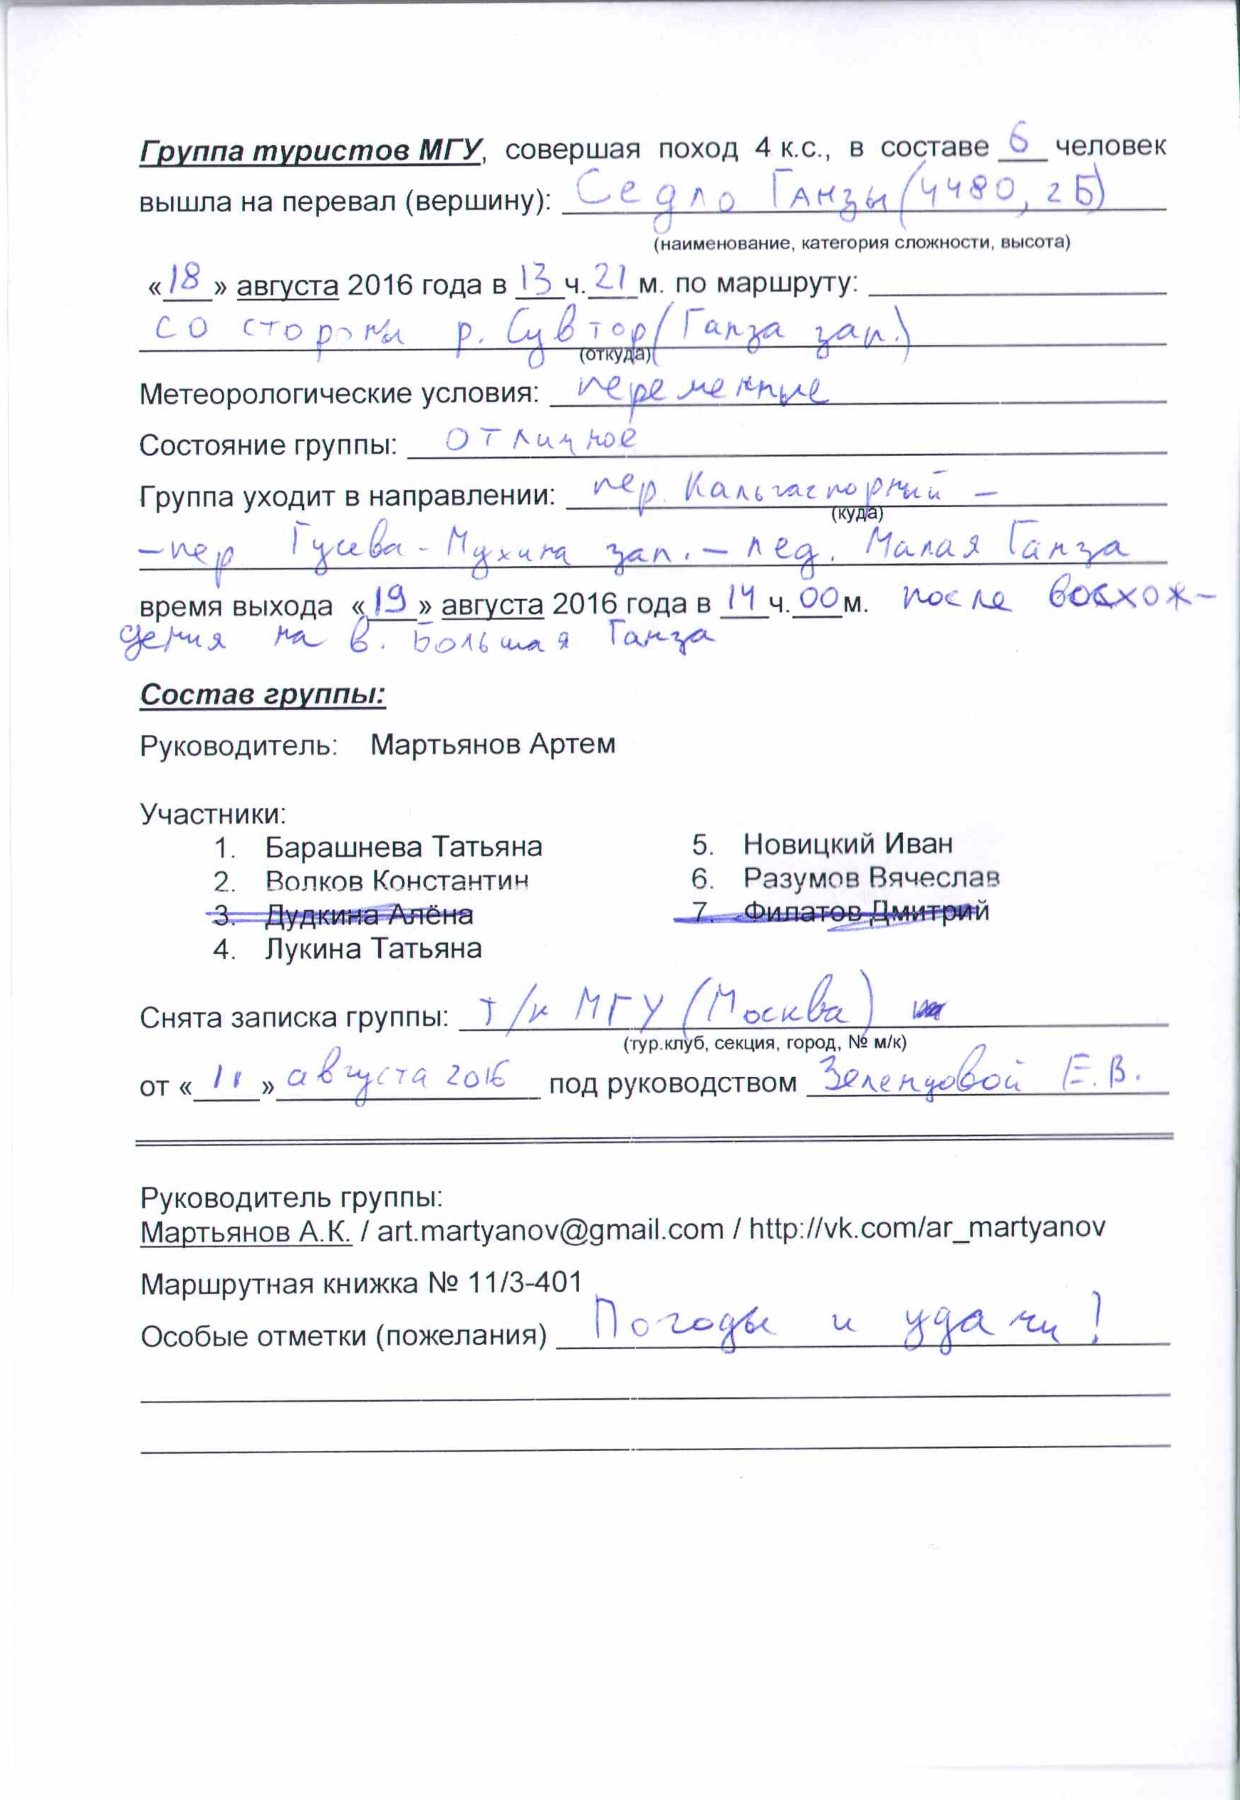 Группа туристов МГУ, совершая поход 4 к.с., в составе 6 человек
вышла на перевал (вершину): Седло Ганзы (4480, 2Б)
(наименование, категория сложности, высота)
«18» августа 2016 года в 13 ч. 21 м. по маршруту:
со стороны р. Сувтор (Ганза зап.)
(откуда)
Метеорологические условия: переменные
Состояние группы: отличное
Группа уходит в направлении: пер. Кальгаспорный –
(куда)
– пер Гусева - Мухина зап. – лед. Малая Ганза
время выхода «19» августа 2016 года в 14 ч. 00 м. после восхож-
дения на в. Большая Ганза
Состав группы:
Руководитель: Мартьянов Артем
Участники:
1. Барашнева Татьяна
2. Волков Константин
3. Дудкина Алёна
4. Лукина Татьяна
5. Новицкий Иван
6. Разумов Вячеслав
7. Филатов Дмитрий
Снята записка группы: т/к МГУ (Москва)
(тур.клуб, секция, город, № м/к)
от «11» августа 2016 под руководством Зеленцовой Е.В.
Руководитель группы:
Мартьянов А.К. / art.martyanov@gmail.com / http://vk.com/ar_martyanov
Маршрутная книжка № 11/3-401
Особые отметки (пожелания) Погоды и удачи!